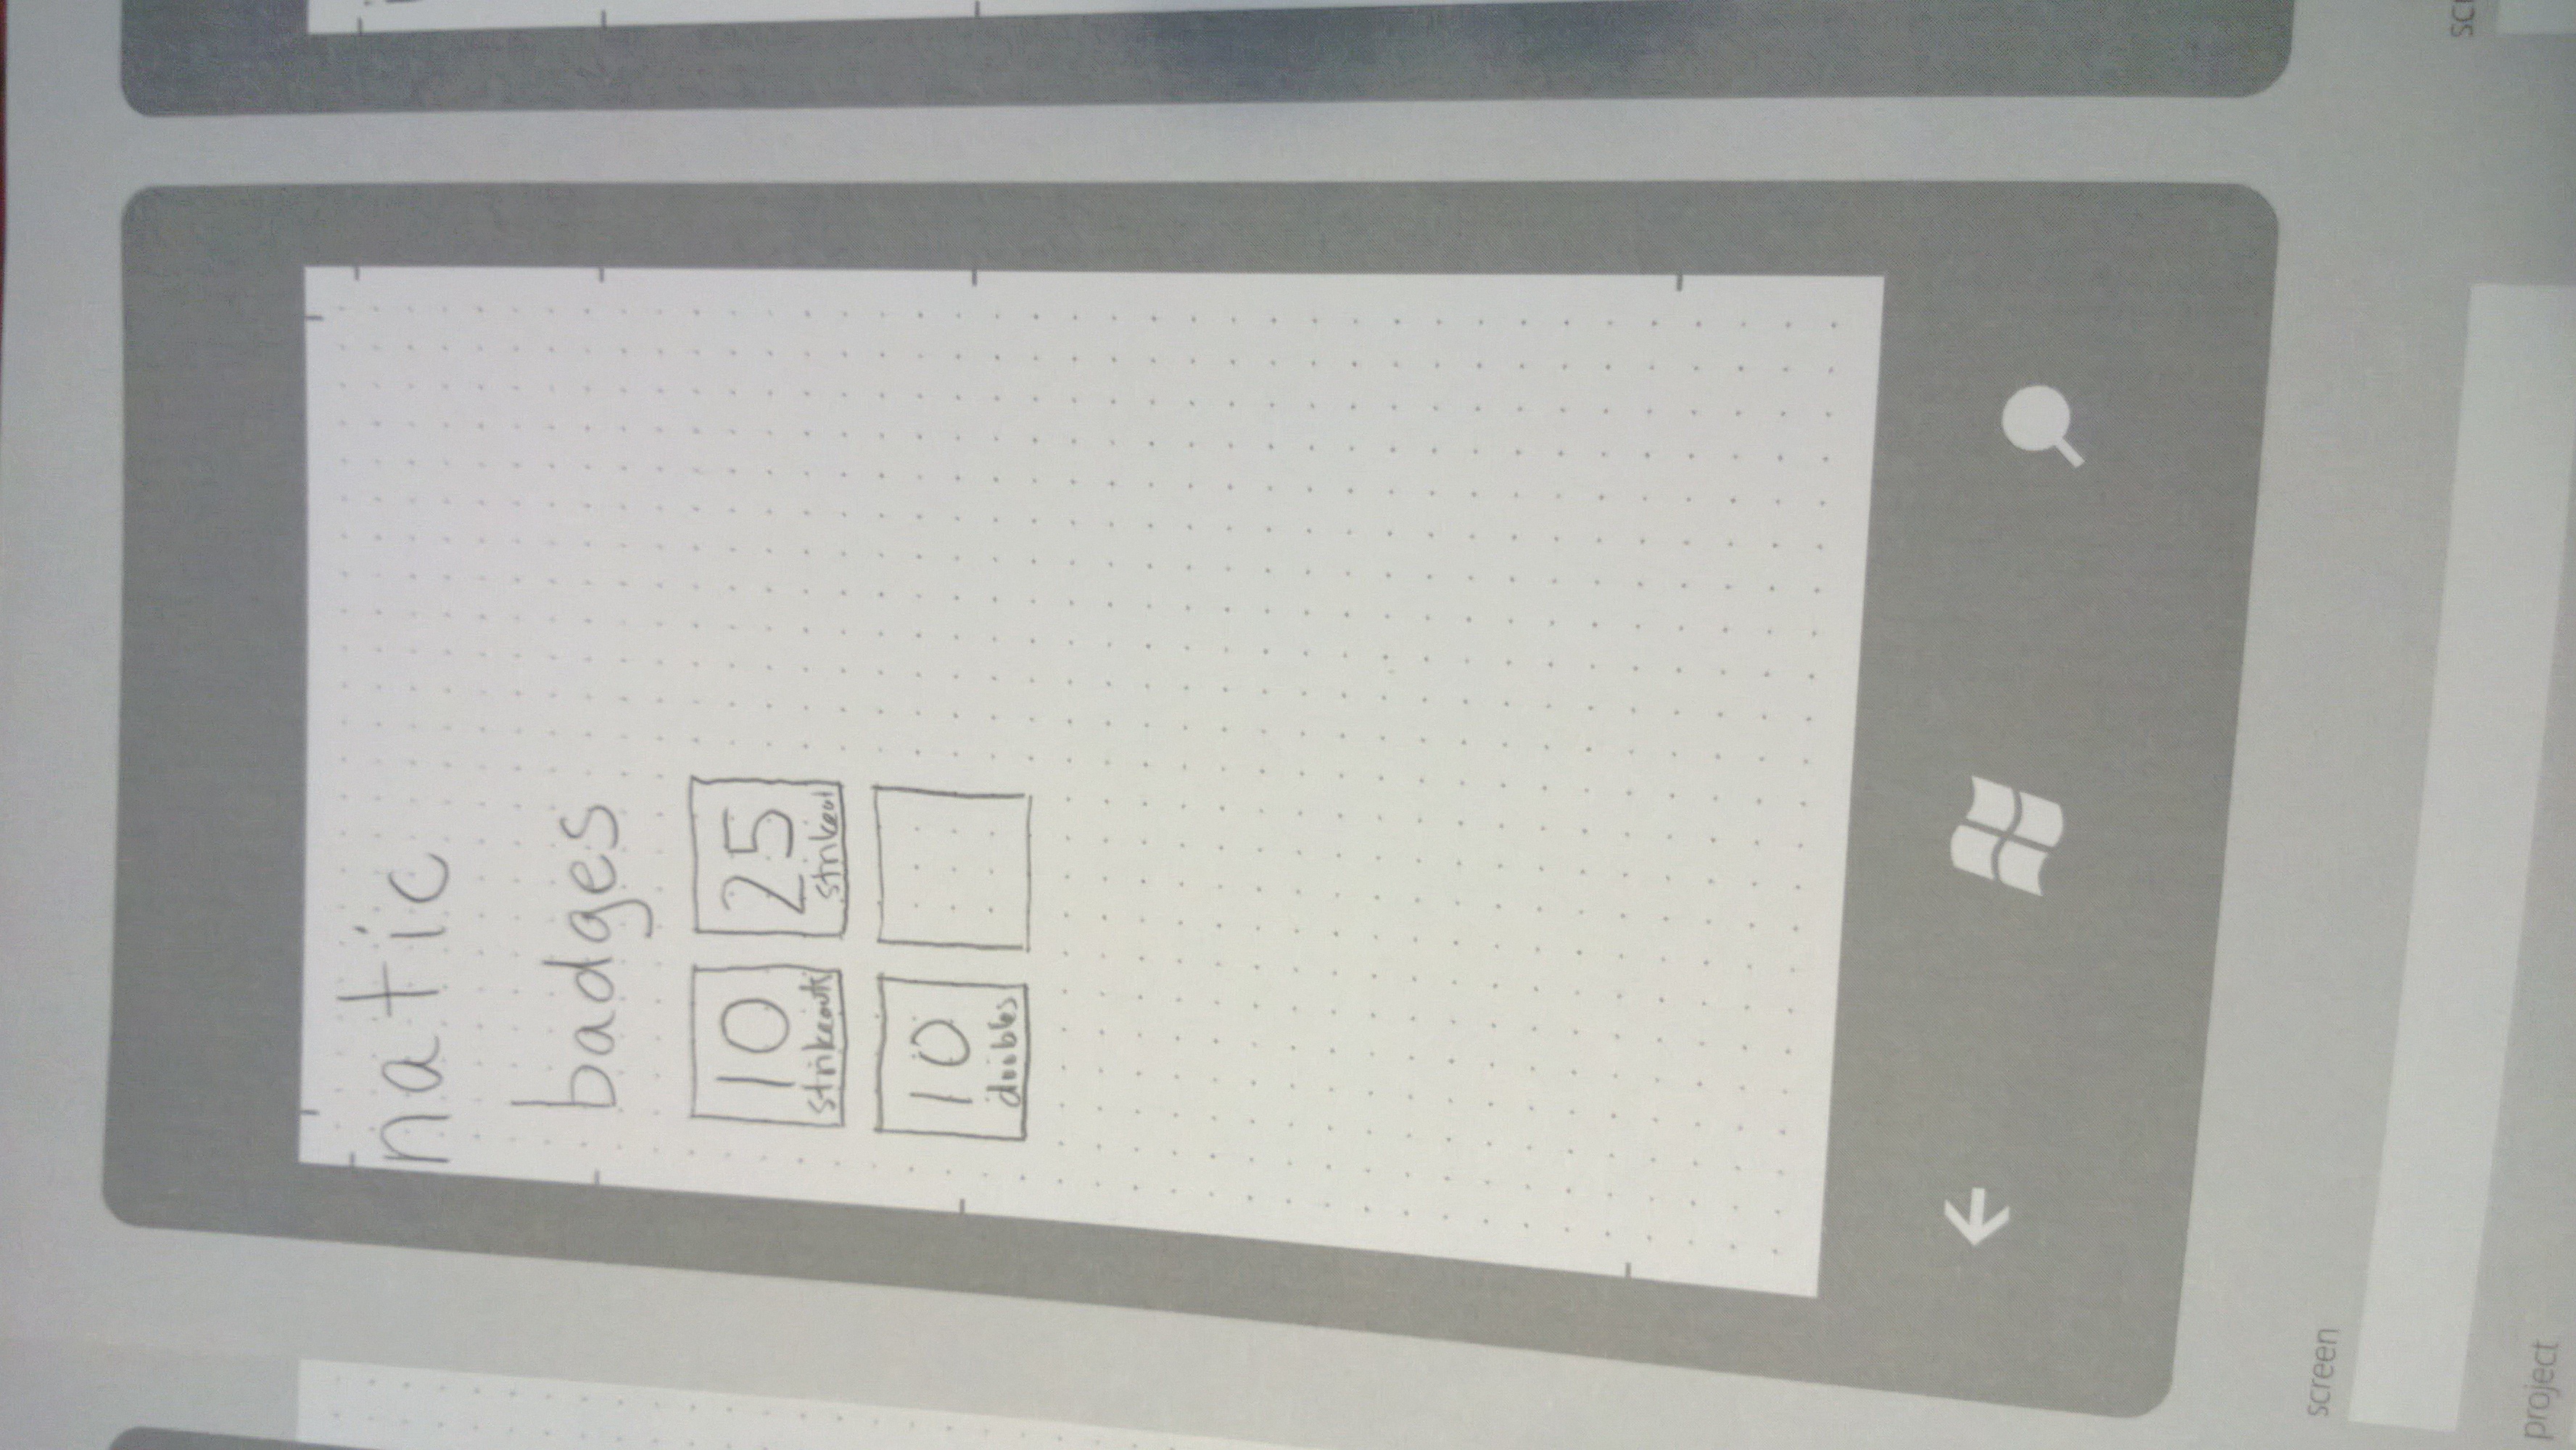 natic
badges
10 25
strikeouts strikeou
10
doubles
screen
project
scr